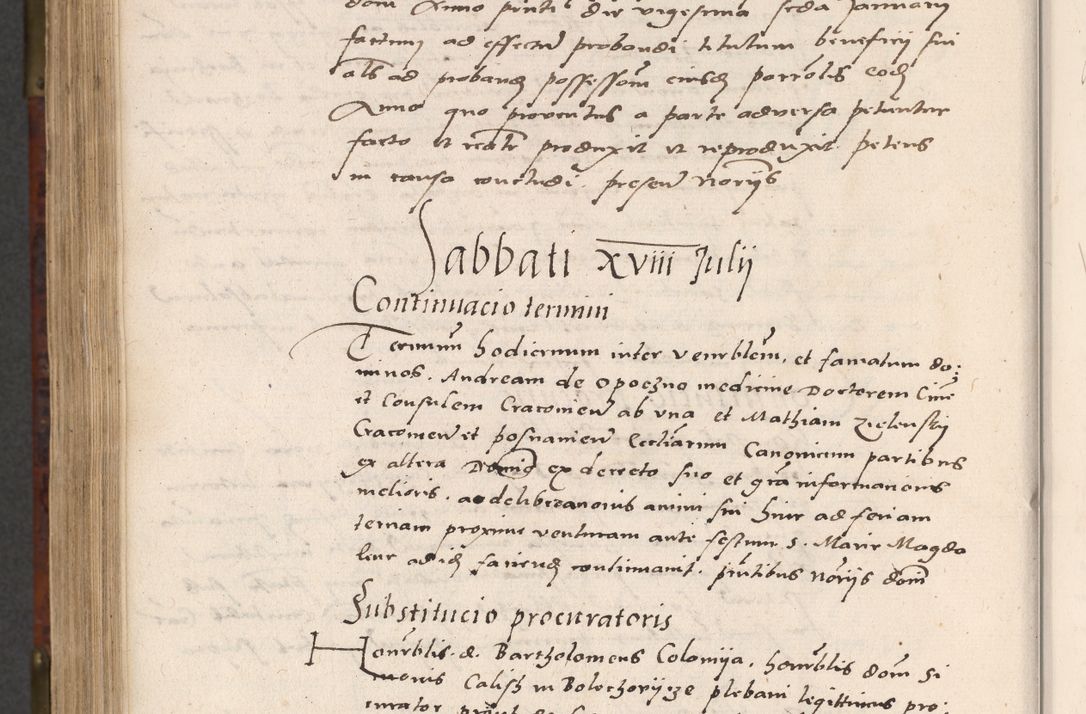 dom Anno pñtis die vigesima scda Januarii
factum ad effectũ probandi titulum beneficii sui
als ad probandũ possessom eiusdẽ parrolis eodẽ
Anno quo proventus a parte adversa petuntur
facto et realr produxit et reproduxit petens
in causa concludi presen Noriis
Sabbati xviii Julii
Continuacio termini
Terminum hodiernum inter venrblem, et famatum do:
minos. Andream de Opoczno medicine Doctorem Cive
et Consulem Cracovien ab vna et Mathiam Zielenskij
Cracovien et posnanien Ecclarum Canonicum partibus
ex altera Domis ex decreto suo et gra informationis
melioris. ac deliberationis animi sui huc ad feriam
terciam proxime venturam ante festum S. Marie Magda
lene ad idẽ faciendũ continuavit. pñtibus Noriis dom
Substitucio procuratoris
Honrblis. d. Bartholomeus Colonija. honrblis dom Si
monis Calish in Bolechorijcze plebani legittimus pro:
curator